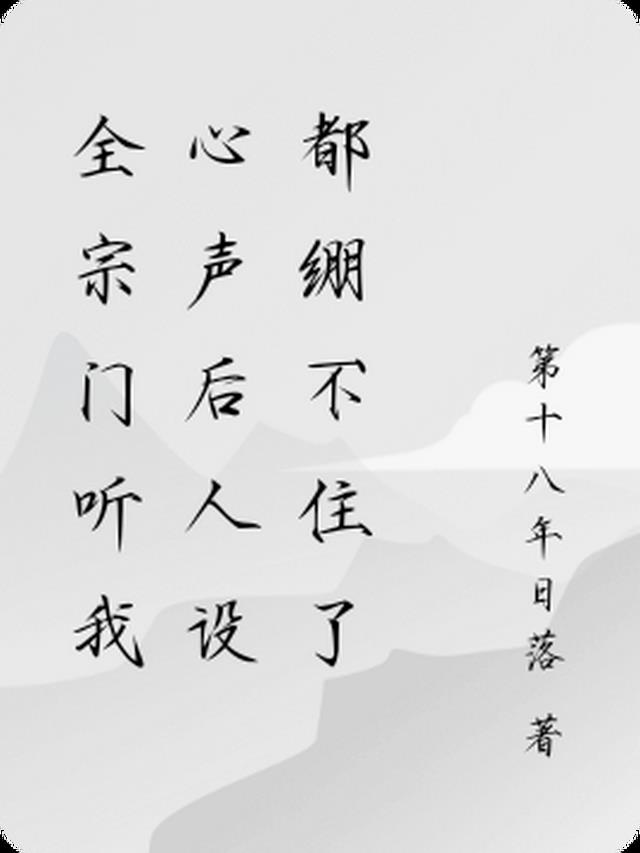 全宗门听我
心声后人设
都绷不住了
第十八年日落 著